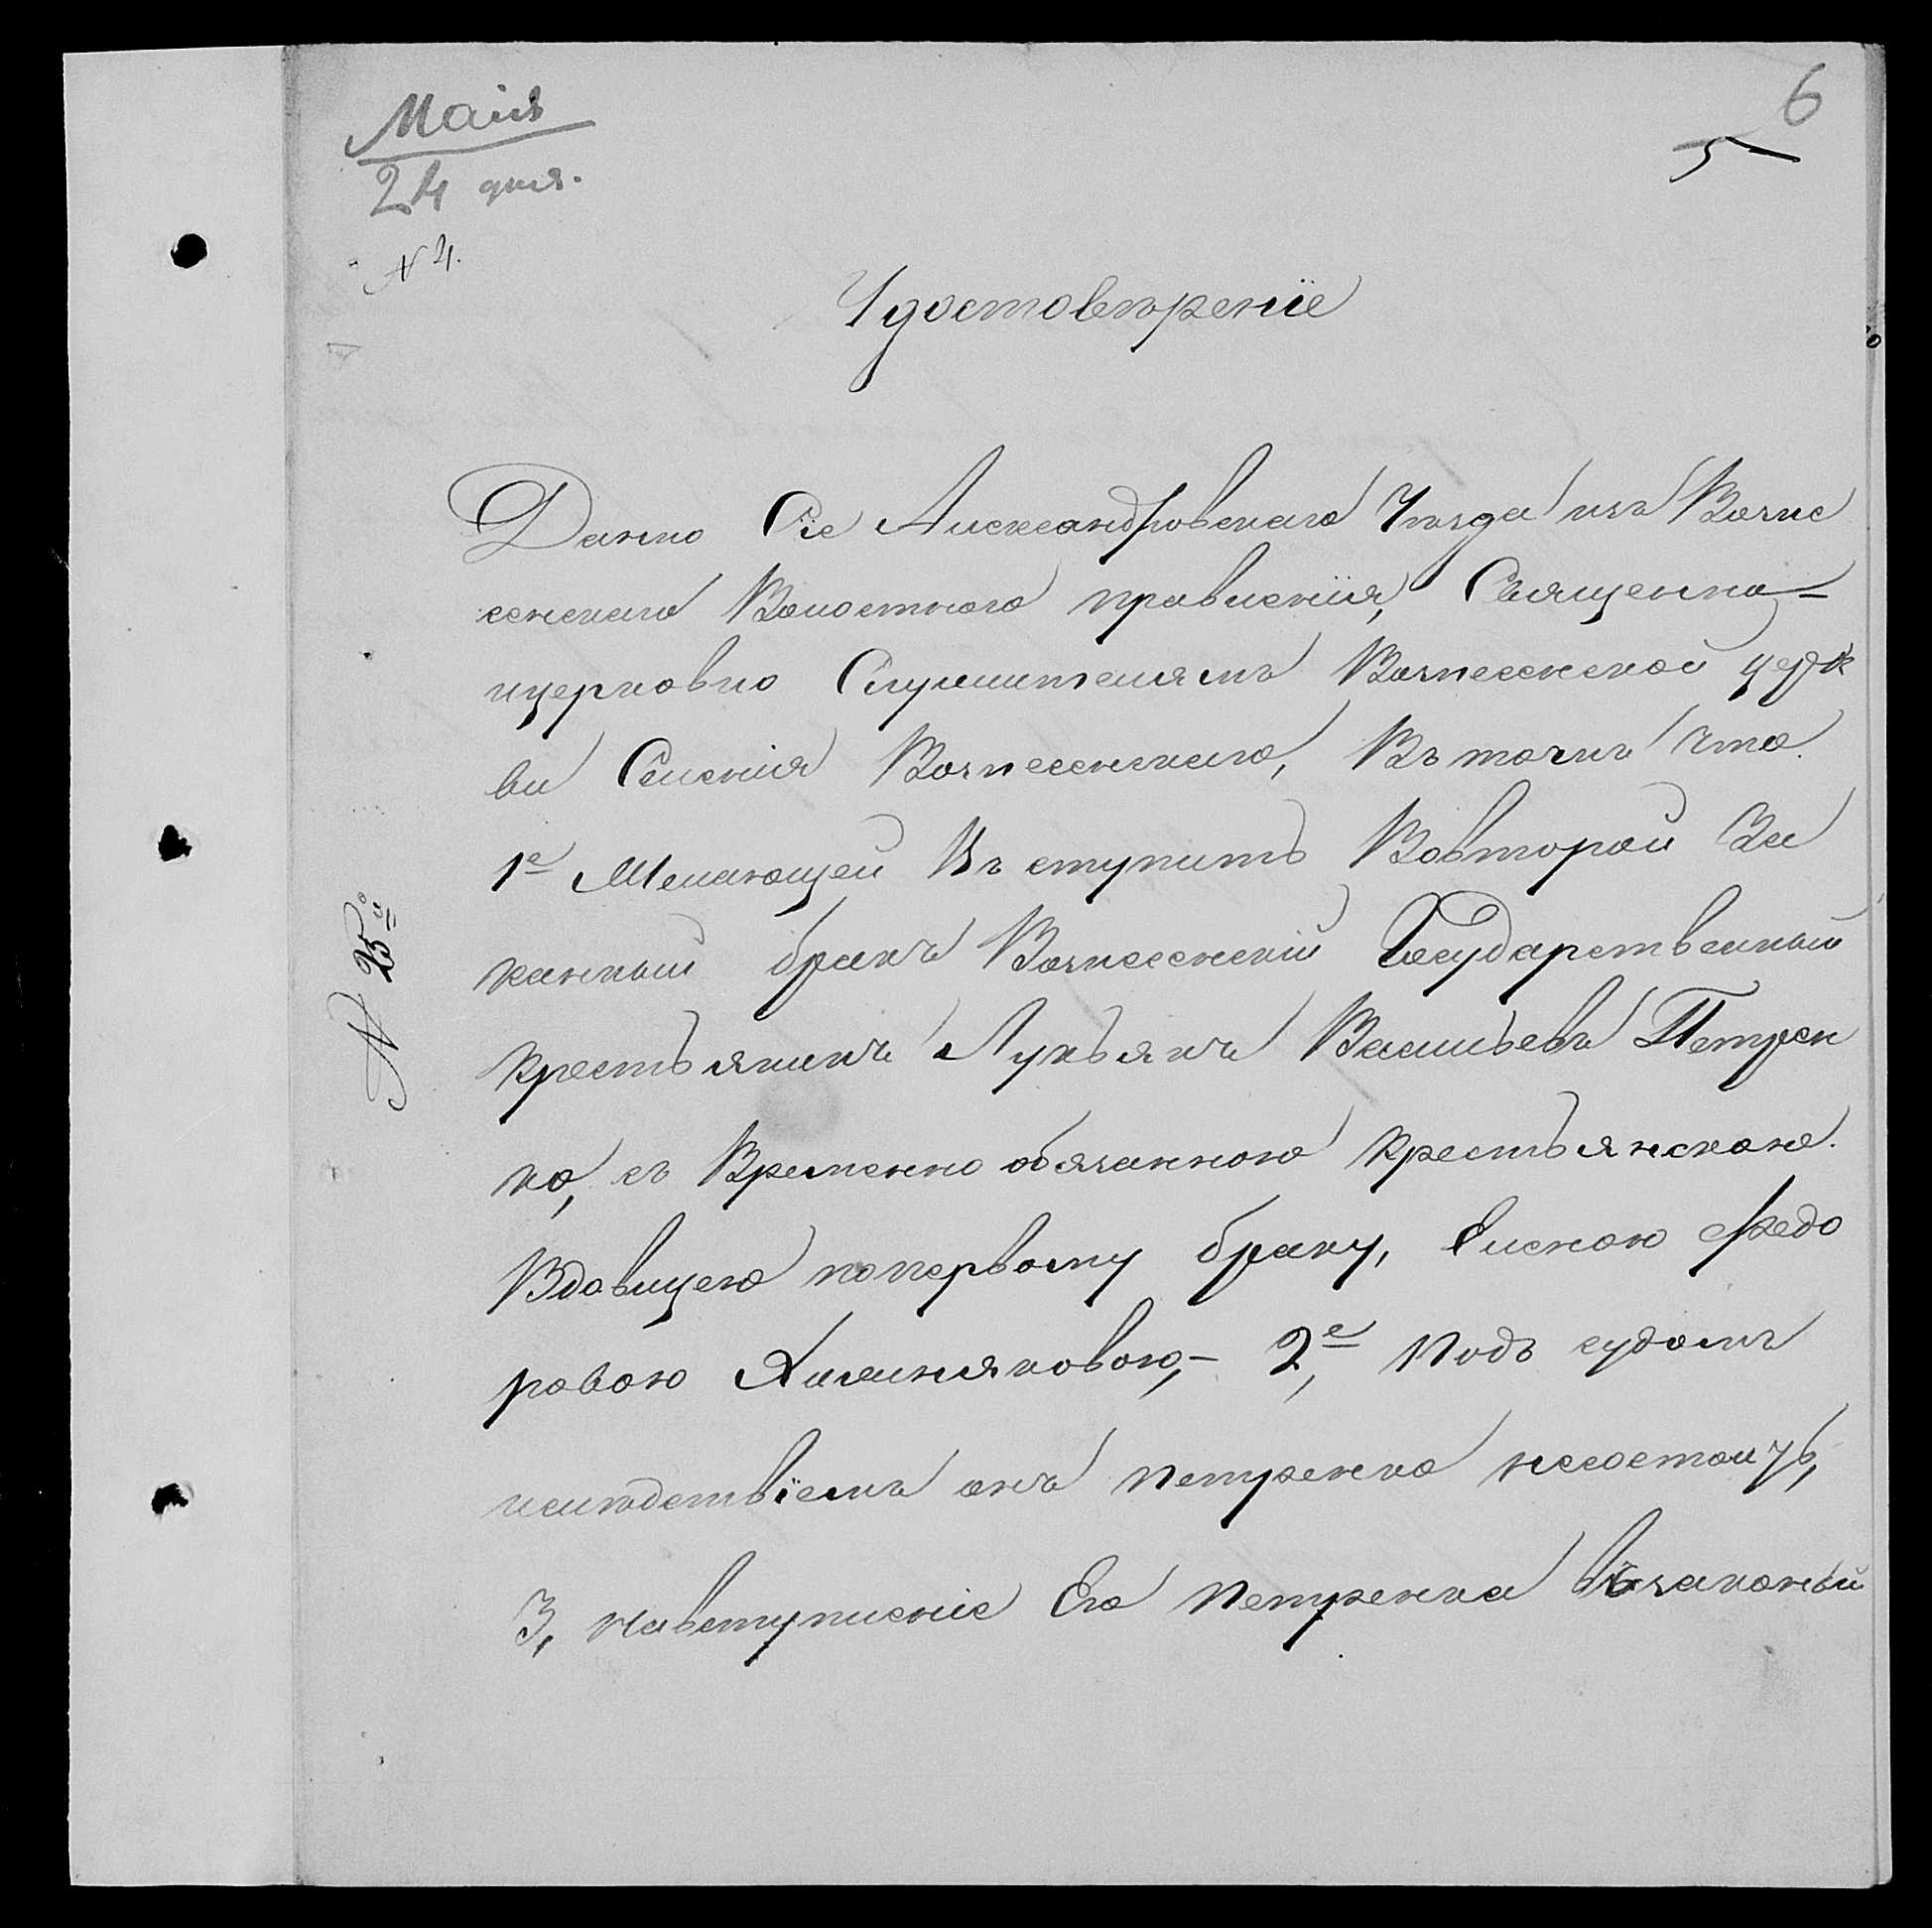 Маія
6
5
24 дня.
№ 4.
Удостовѣреніе
Дано Сіе Александровскаго Уѣзда изъ Возне
сенскаго Волостного правленія, Священно-
ицерковно Служителямъ Вознесенской церк
ви Селенія Вознесенскаго, Въ томъ что.
1е Желающей Въ ступить Вовторой За
конный бракъ Вознесенскій Государственный
крестьянинъ Лукьянъ Васильевъ Петрен
ко, съ Временно обязанною крестьянскою.
Вдовицею попервому браку, Еленою Федо
ровою 2е, Подъ судомъ
ислѣдствіемъ онъ петренко несостоитъ,
3, навступленіе Его петренка взаконный
№ 25й